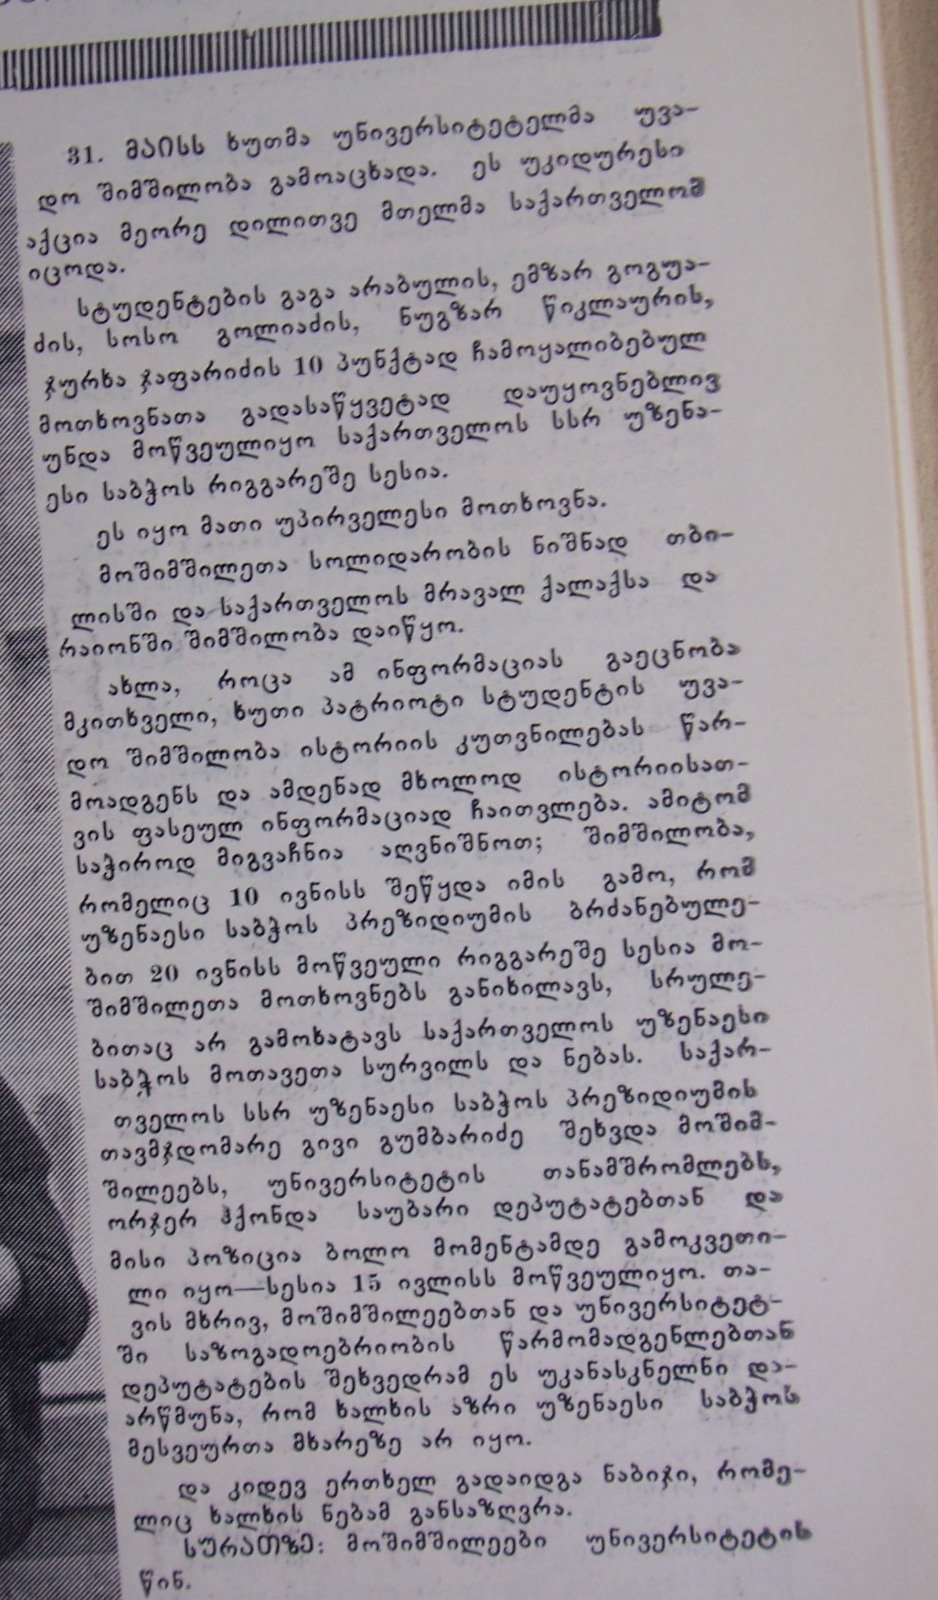 31. მაისს ხუთმა უნივერსიტეტელმა უვა-
დო შიმშილობა გამოაცხადა. ეს უკიდურესი
აქცია მეორე დილითვე მთელმა საქართველომ
იცოდა.
სტუდენტების გაგა არაბულის, ემზარ გოგუა-
ძის, სოსო გოლიაძის, ნუგზარ წიკლაურის,
ჯურხა ჯაფარიძის 10 პუნქტად ჩამოყალიბებულ
მოთხოვნათა გადასაწყვეტად დაუყოვნებლივ
უნდა მოწვეულიყო საქართველოს სსრ უზენა-
ესი საბჭოს რიგგარეშე სესია.
ეს იყო მათი უპირველესი მოთხოვნა.
მოშიმშილეთა სოლიდარობის ნიშნად თბი-
ლისში და საქართველოს მრავალ ქალაქსა და
რაიონში შიმშილობა დაიწყო.
ახლა, როცა ამ ინფორმაციას გაეცნობა
მკითხველი, ხუთი პატრიოტი სტუდენტის უვა-
დო შიმშილობა ისტორიის კუთვნილებას წარ-
მოადგენს და ამდენად მხოლოდ ისტორიისათ-
ვის ფასეულ ინფორმაციად ჩაითვლება. ამიტომ
საჭიროდ მიგვაჩნია აღვნიშნოთ; შიმშილობა,
რომელიც 10 ივნისს შეწყდა იმის გამო, რომ
უზენაესი საბჭოს პრეზიდიუმის ბრძანებულე-
ბით 20 ივნისს მოწვეული რიგგარეშე სესია მო-
შიმშილეთა მოთხოვნებს განიხილავს, სრულე-
ბითაც არ გამოხატავს საქართველოს უზენაესი
საბჭოს მოთავეთა სურვილს და ნებას. საქარ-
თველოს სსრ უზენაესი საბჭოს პრეზიდიუმის
თავმჯდომარე გივი გუმბარიძე შეხვდა მოშიმ-
შილეებს, უნივერსიტეტის თანამშრომლებს,
ორჯერ ჰქონდა საუბარი დეპუტატებთან და
მისი პოზიცია ბოლო მომენტამდე გამოკვეთი-
ლი იყო—სესია 15 ივლისს მოწვეულიყო. თა-
ვის მხრივ, მოშიმშილეებთან და უნივერსიტეტ-
ში საზოგადოებრიობის წარმომადგენლებთან
დეპუტატების შეხვედრამ ეს უკანასკნელნი და-
არწმუნა, რომ ხალხის აზრი უზენაესი საბჭოს
მესვეურთა მხარეზე არ იყო.
და კიდევ ერთხელ გადაიდგა ნაბიჯი, რომე-
ლიც ხალხის ნებამ განსაზღვრა.
სურათზე: მოშიმშილეები უნივერსიტეტის
წინ.